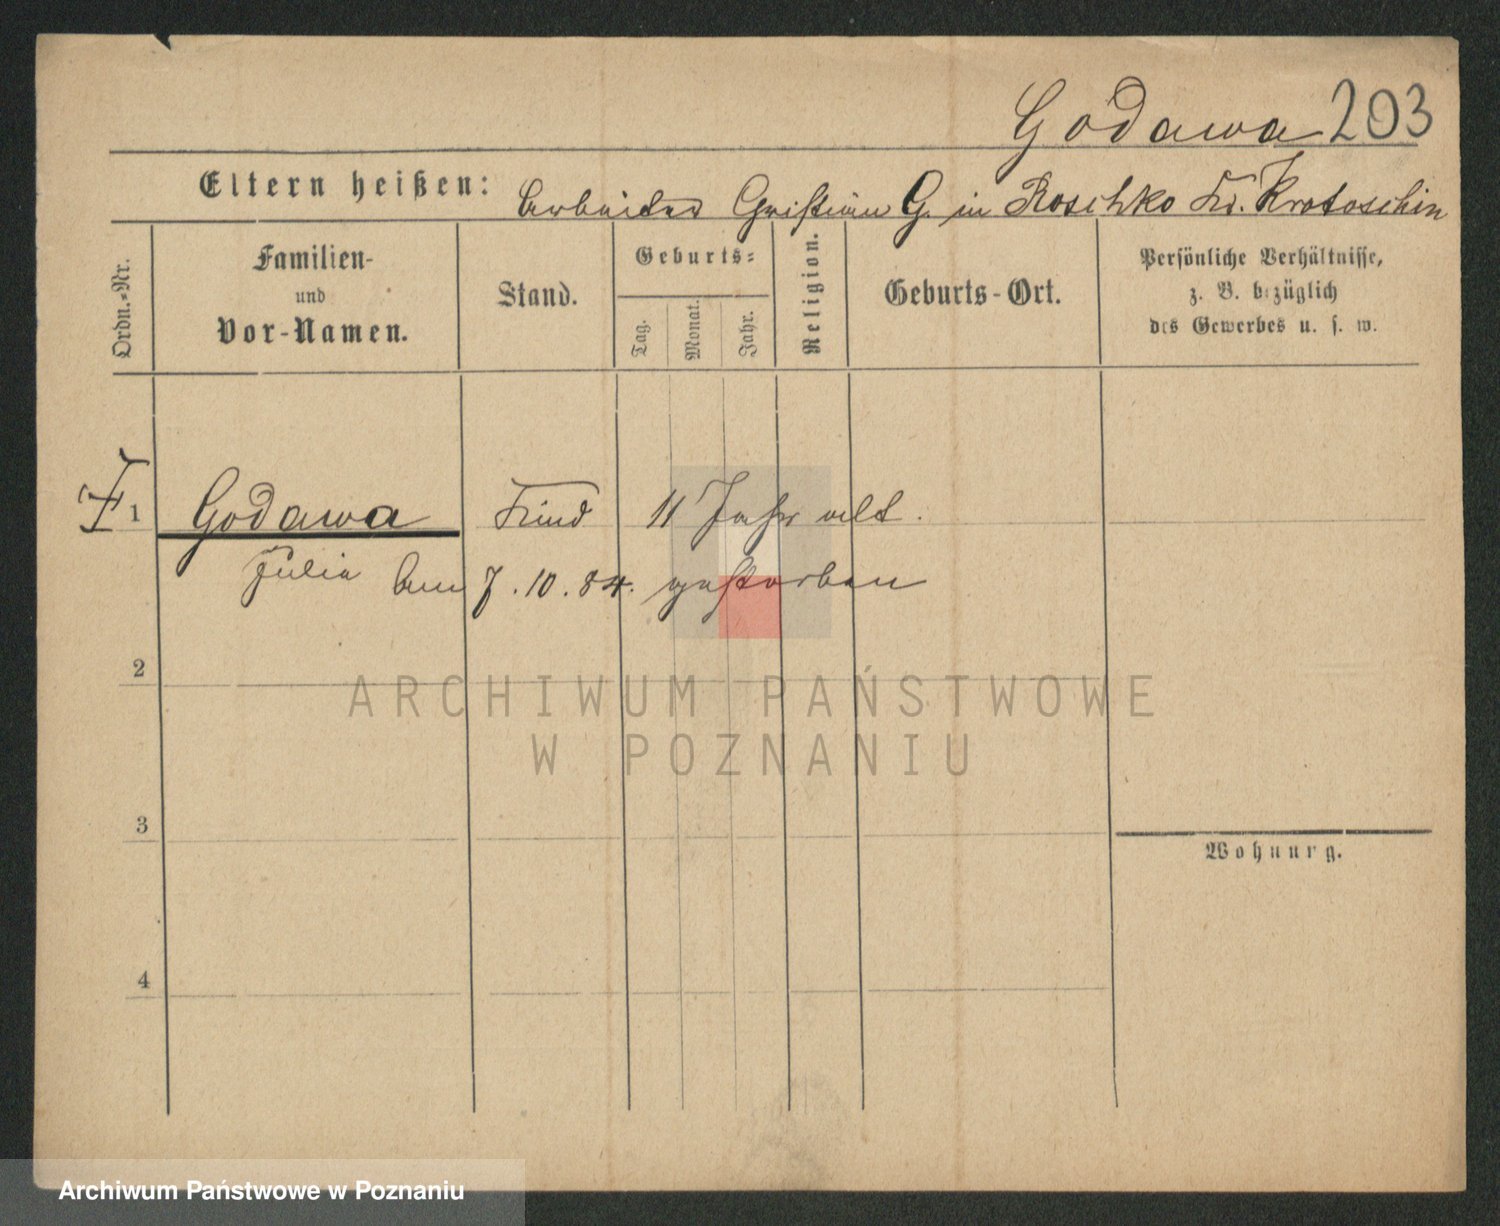 Godawa 203
Eltern heißen: Arbeiter Cristian G. in Roschko Kr. Krotoschin
Ordn.-Nr.
Familien-
und
Vor-Namen.
Stand.
Geburts-
Tag.
Monat.
Jahr.
Religion.
Geburts-Ort.
Persönliche Verhältnisse,
z. B. bezüglich
des Gewerbes u. s. w.
1 Godawa Kind 11 Jahr alt.
Julia Am 7.10.84. gestorben
2
3
4
Wohnung.
ARCHIWUM PAŃSTWOWE
W POZNANIU
Archiwum Państwowe w Poznaniu